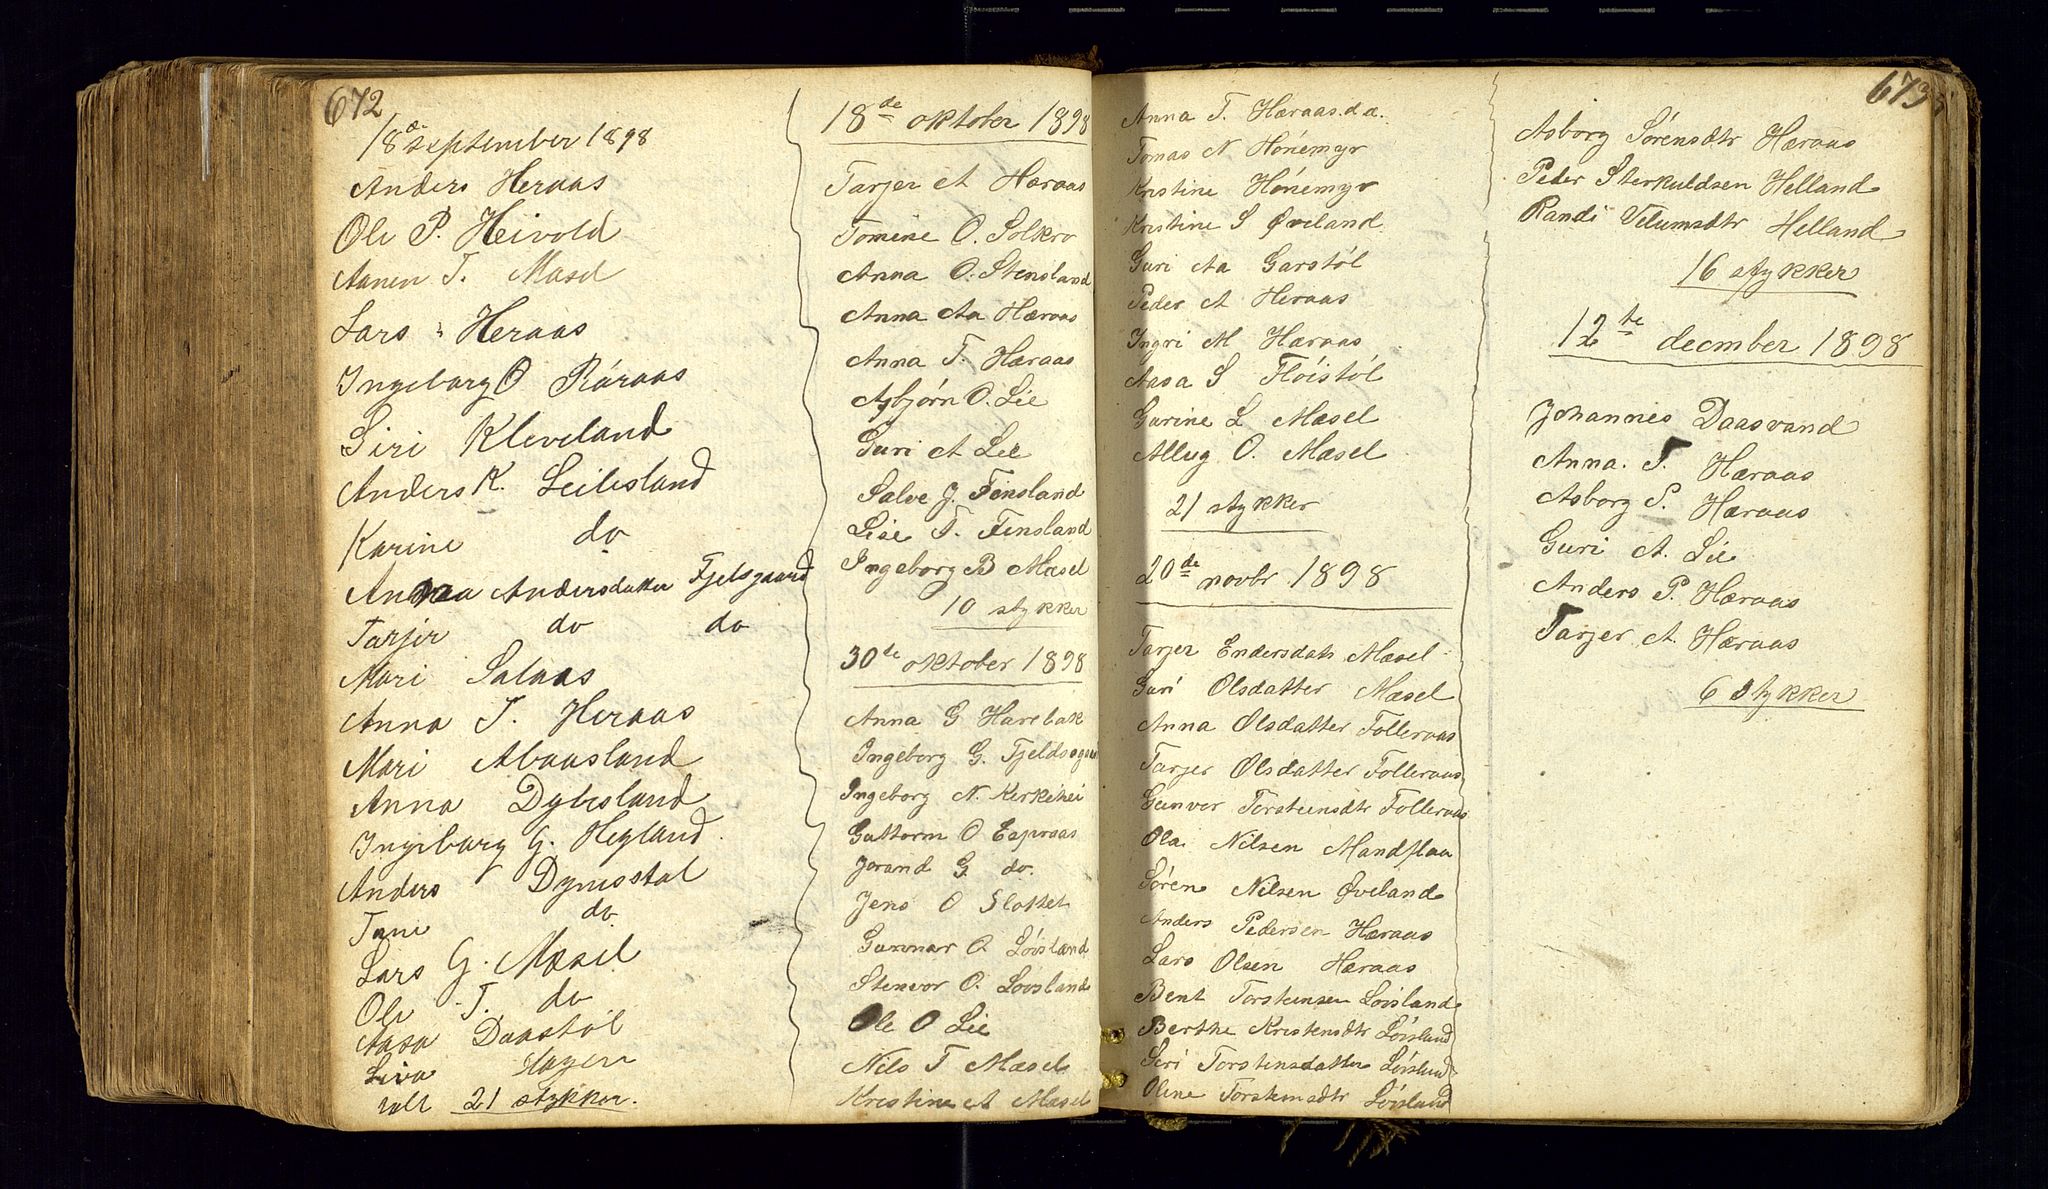 672
18de September 1898
Anders Heraas
Ole P. Heivold
Aanen T. Masel
Lars Heraas
Ingebarg O Råraas
Siri Kleveland
Anders K. Leilesland
Karine do
Anna Andersdatter Fjelsgaard
Tarjer do do
Mari Salaas
Anna T. Heraas
Mari Abaasland
Anna Dybesland
Ingebarg G. Hegland
Anders Dynestøl
Tane do
Lars G. Mæsel
Ole T. do
Aasa Daastøl
Siva Hagen
talt 21 stykker.
18de oktober 1898
Tarjer A Hæraas
Tomine O. Solkro
Anna O. Stensland
Anna Aa Hæraas
Anna T. Hæraas
Asbjørn O. Lie
Guri A Lie
Salve J. Finsland
Lise T. Finsland
Ingeborg B Mæsel
10 stykker
30te oktober 1898
Anna G Harebak
Ingeborg G. Fjeldsgaa
Ingeborg N. Kirkehei
Guttorm O Espraas
Jorand G do.
Jens O Slottet
Gunnar O. Løisland
Stenvor O. Løvsland
Ole O Lie
Nils T Mæsel
Kristine A Mæsel
673
Anna T. Hæraas.da.
Tomas N Hønemyr
Kristine Hønemyr
Kristine S Øveland
Guri Aa Garstøl
Peder A Heraas
Ingri M Hæraas
Aasa S Fløistøl
Gurine L Mæsel
Alleg O. Mæsel
21 stykker
20de novbr. 1898
Tarjer Endersdatr Mæsel
Guri Olsdatter Mæsel
Anna Olsdatter Folleraas
Tarjer Olsdatter Folleraas
Gunvor Torsteinsdtr Folleraas
Ola Nilsen Mandflaa
Søren Nilsen Øveland
Anders Pedersen Hæraas
Lars Olsen Hæraas
Bent Torsteinsen Løisland
Berthe Kristensdtr Løisland
Seri Torstensdatter Løisland
Oline Torsteinsdtr Løisland
Asborg Sørensdtr Hæraas
Peder Sterkuldsen Helland
Randi Velumsdtr Helland
16 stykker
12te decmber 1898
Johannes Daasvand
Anna. T. Hæraas
Asborg S. Hæraas
Guri A. Lie
Anders P. Hæraas
Tarjer A. Hæraas
6 stykker